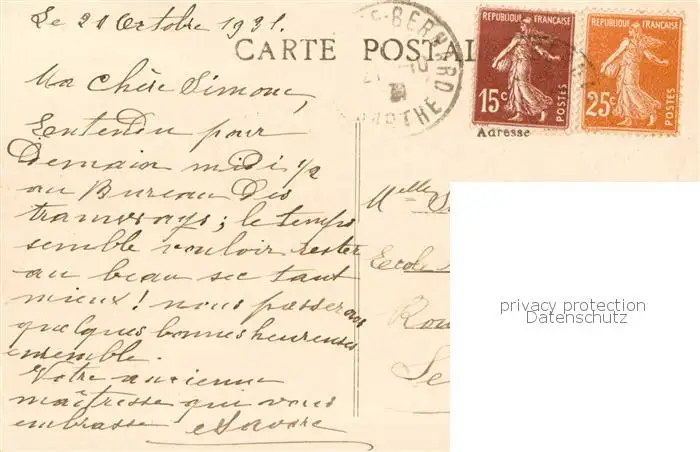 Le 21 Octobre 1931.
CARTE POSTAL
E-BERNARD
21 -10
31
SARTHE
RÉPUBLIQUE FRANÇAISE
15c
POSTES
RÉPUBLIQUE FRANÇAISE
25c
POSTES
Adresse
Ma chère Simone,
Entendu pour
Demain midi 1/2
au Bureau des
tramways; le temps
semble vouloir rester
au beau sec tant
mieux! nous passerons
quelques bonnes heureuses
ensemble.
Votre ancienne
maîtresse qui vous
embrasse
Melle S
Ecole
Rou
Le
privacy protection
Datenschutz